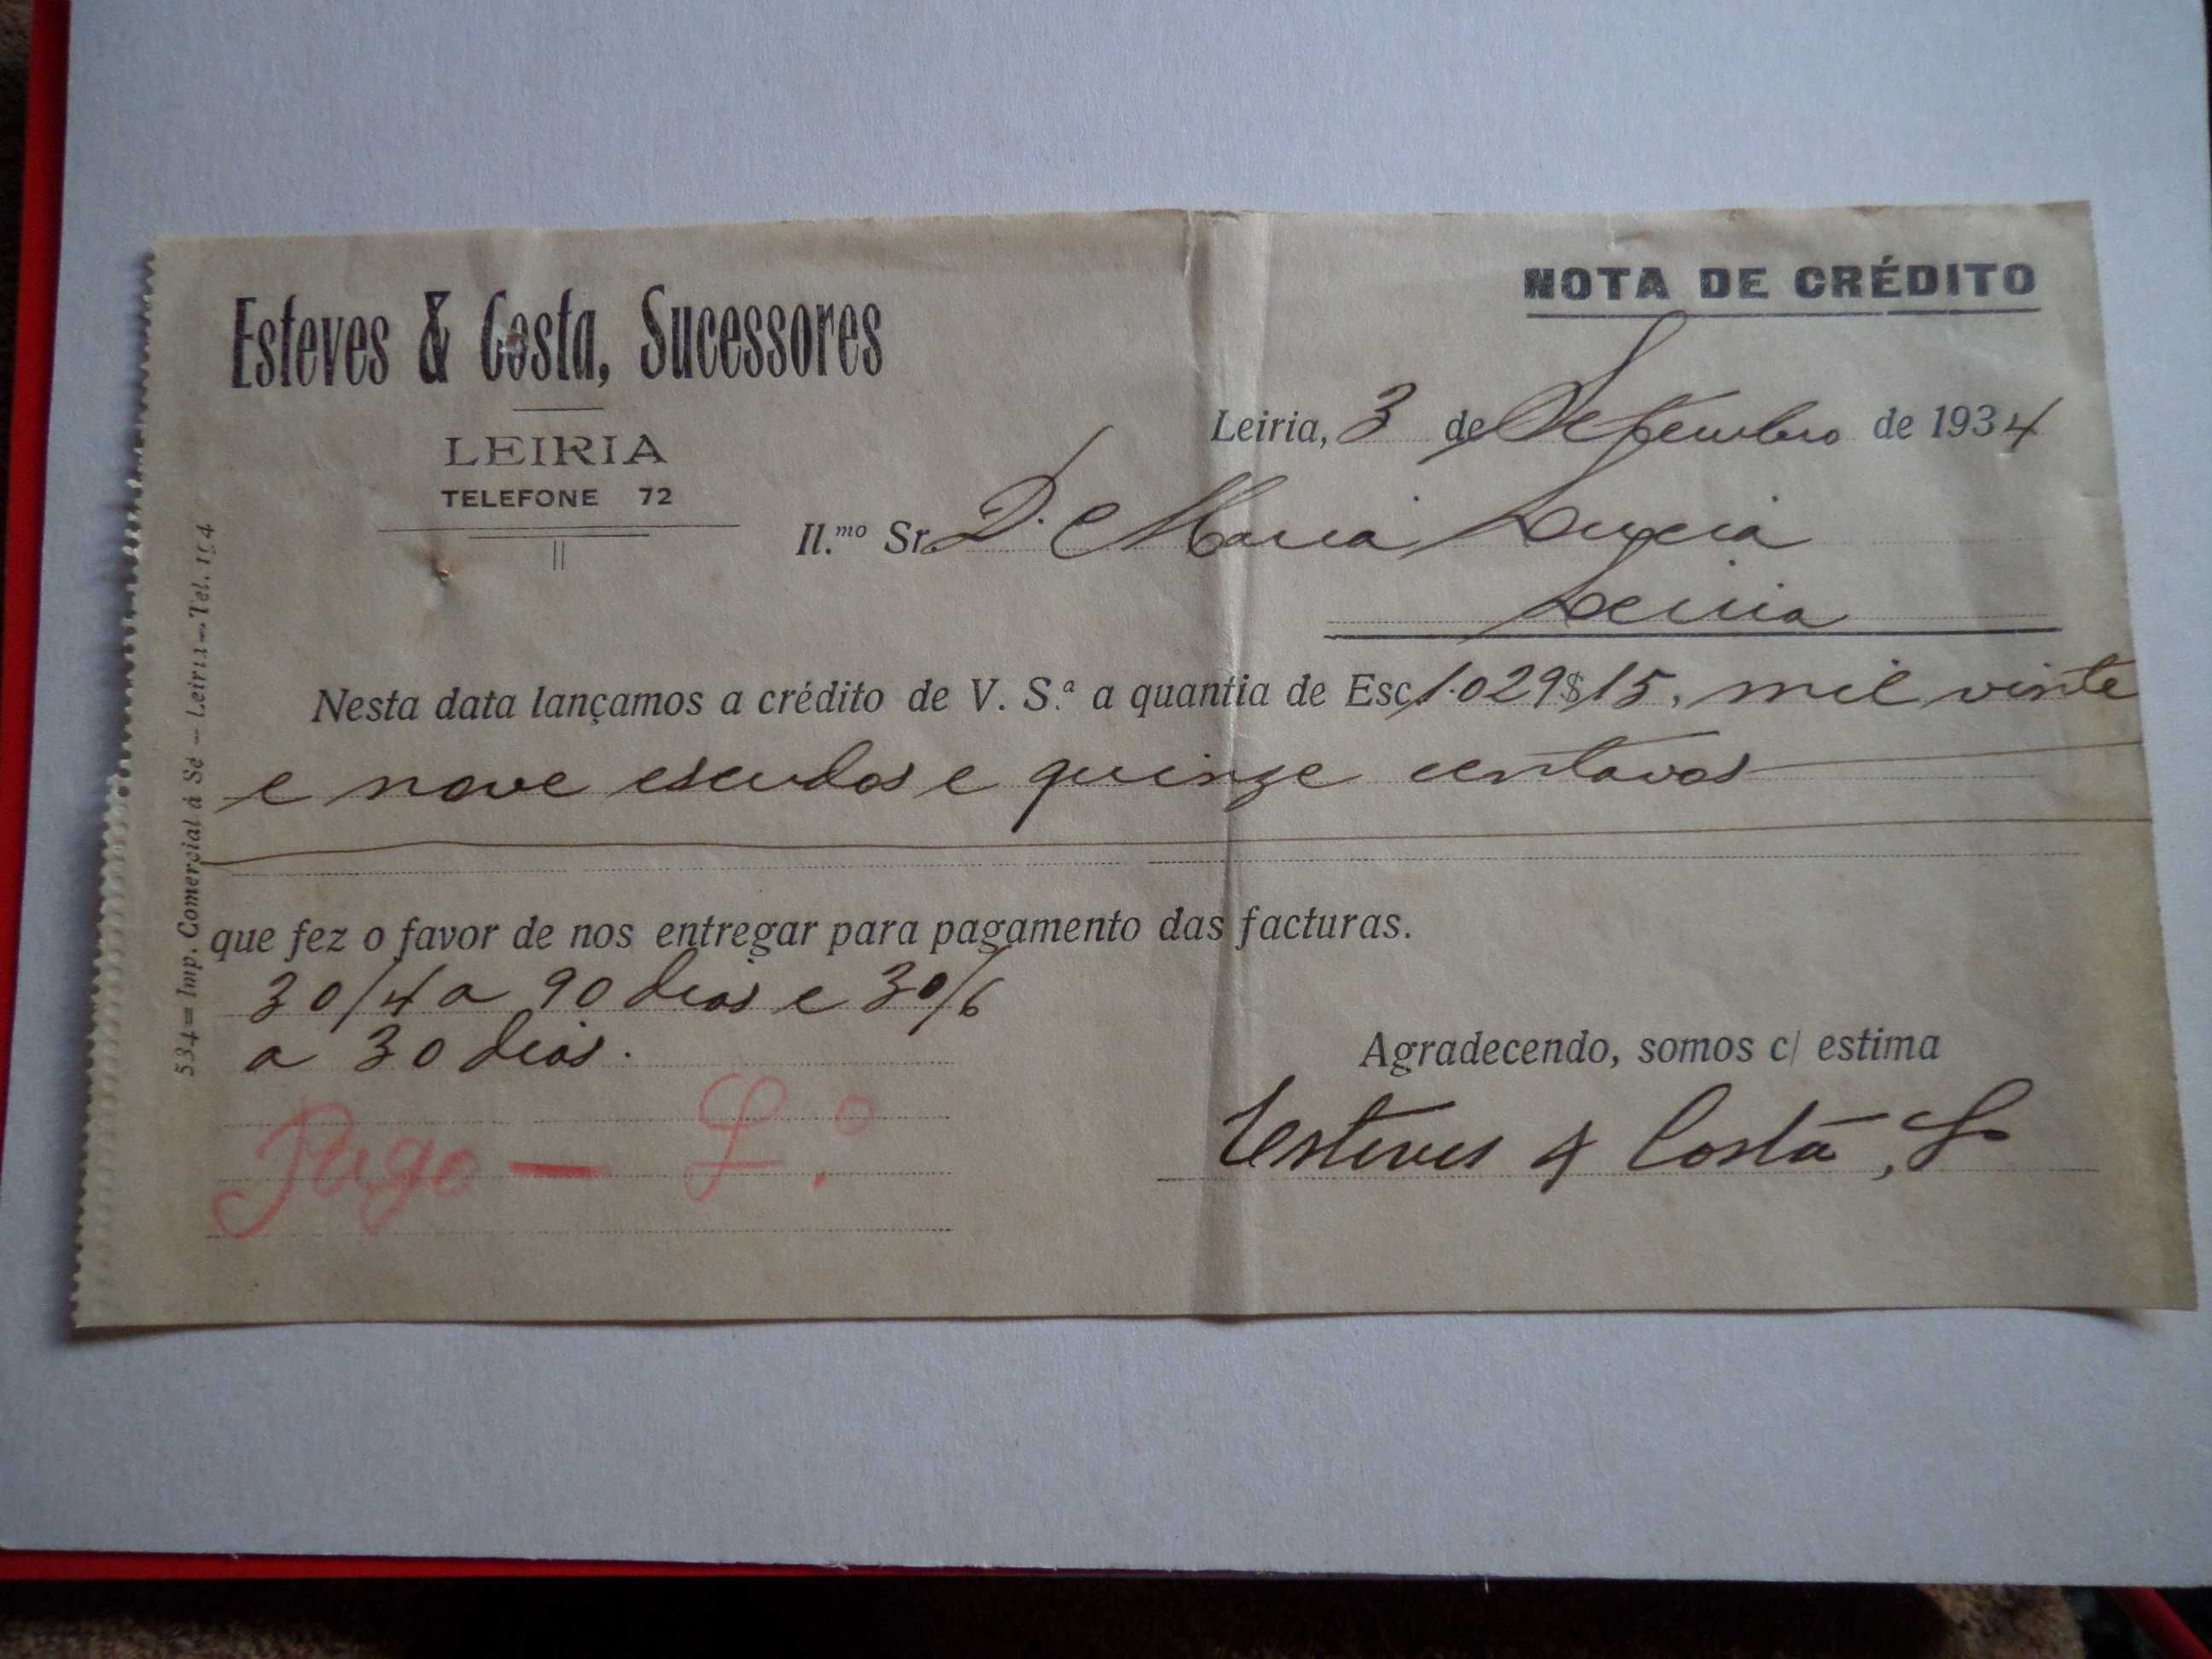 Esteves & Costa, Sucessores
LEIRIA
TELEFONE 72
NOTA DE CRÉDITO
Leiria, 3 de Setembro de 1934
Il.mo Sr. D. Maria
Leiria
Nesta data lançamos a crédito de V. S.ª a quantia de Esc. 1.029$15, mil vinte
e nove escudos e quinze centavos
que fez o favor de nos entregar para pagamento das facturas.
30/4 a 90 dias e 30/6
a 30 dias.
Pago —
Agradecendo, somos c/ estima
Esteves & Costa, S
534 = Imp. Comercial á Sé — Leiria — Tel. 154